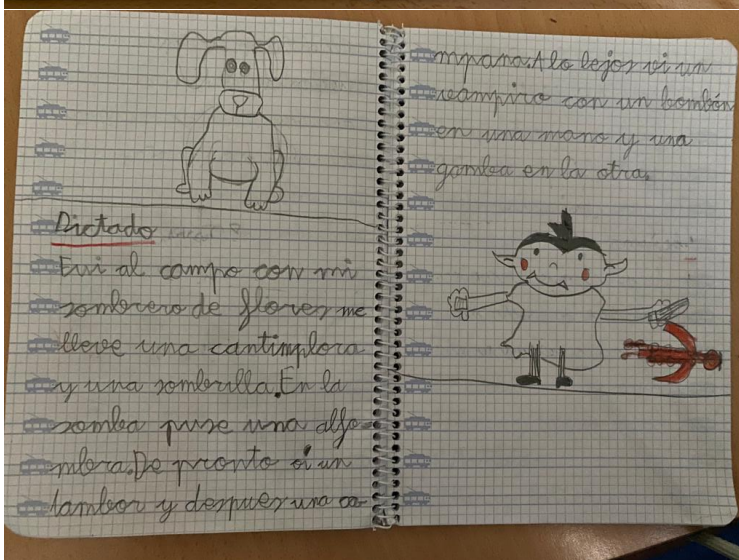 Dictado
Fui al campo con mi
sombrero de flores me
lleve una cantimplora
y una sombrilla. En la
somba puse una alfo-
mbra. De pronto oi un
tambor y despues una ca-
mpana. A lo lejos vi un
vampiro con un bombón
en una mano y una
gamba en la otra.